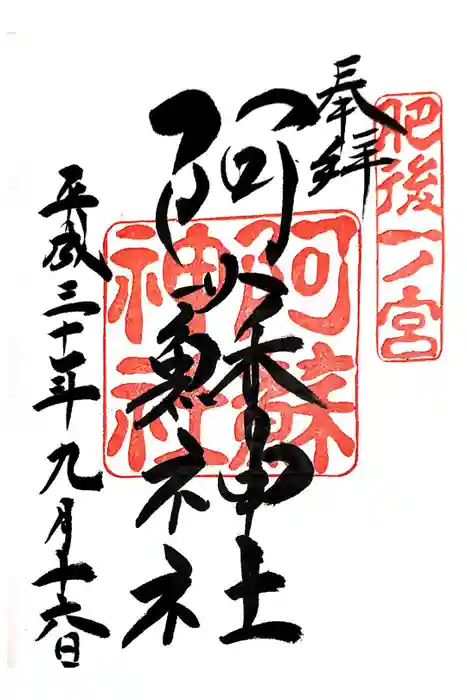 奉拝
肥後一ノ宮
阿蘇神社
阿蘇神社
平成三十年九月十六日